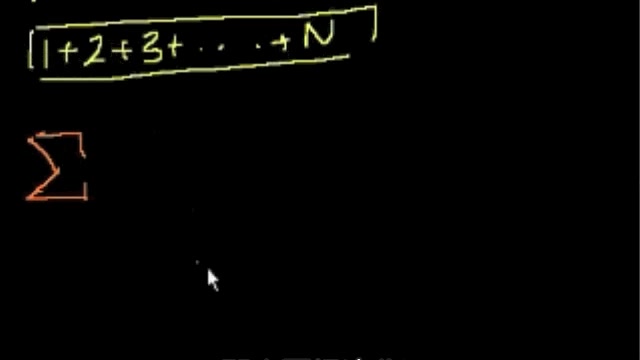 1+2+3+. . . .+ N
Σ